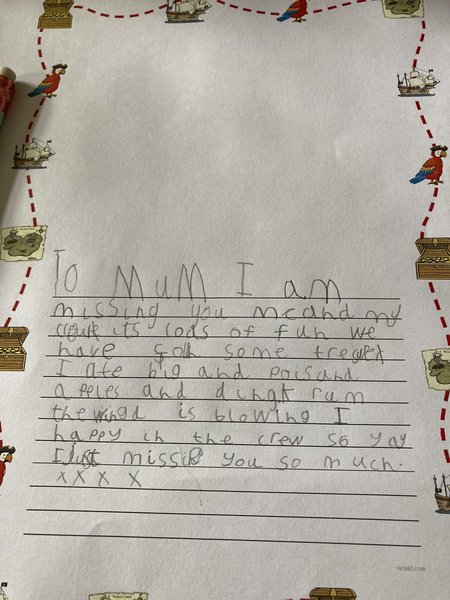 To MuM I am
missing you me and my
its lods of fun we
have some
I ate big and poisand
apples and dingk rum
the wingd is blowing I
happy in the crew so yay
I missing you so much.
x x x x
twinkl.com